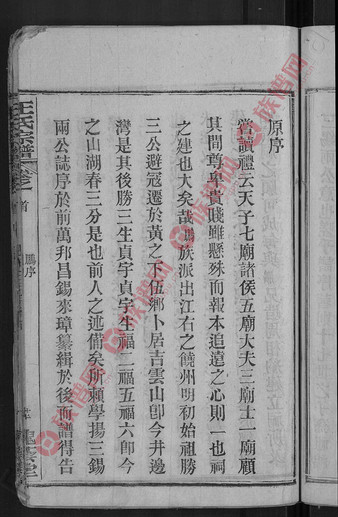 原序
嘗讀禮云天子七廟諸侯五廟大夫三廟士一廟顧
其間尊卑貴賤雖懸殊而報本追遠之心則一也祠
之建也大矣哉 族派出江右之饒州明初始祖勝
三公避寇遷於黃之下伍鄉卜居吉雲山卽今井邊
灣是其後勝三生貞字貞字生福二福五福六卽今
之山湖春三分是也前人之述備矣所賴學揚三錫
兩公誌序於前萬邦昌錫來璋纂緝於後而譜得告
王氏宗譜
卷之 首
序
族譜网